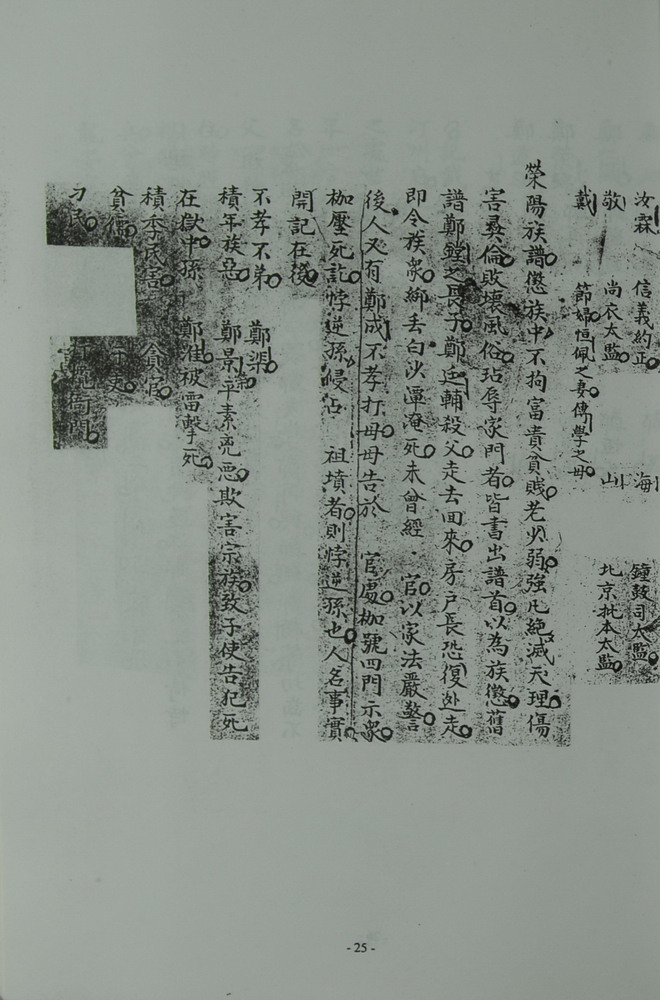 汝霖 信義約正 海 鐘鼓司太監
敬 尚衣太監 山 北京批本太監
戴 節婦恒佩之妻傳學之母
滎陽族譜懲族中不拘富貴貧賤老少弱強凡絶滅天理傷
害彝倫敗壞風俗玷辱家門者皆書出譜首以為族懲舊
譜鄭鏜之長子鄭廷輔殺父走去回來房戶長恐復处走
即令族衆綁丢白沙潭淹死未曾經 官以家法嚴警
後人又有鄭成不孝打母母告於 官處枷號四門示衆
枷壓死訖悖逆孫侵占 祖墳者則悖逆孫也人名事實
開記在後
不孝不弟 鄭渠
積年族惡 鄭景平素兇惡欺害宗族致子使告犯死
在獄中孫 鄭淮被雷擊死
積季民害 貪官
貧儒
刁民
- 25 -